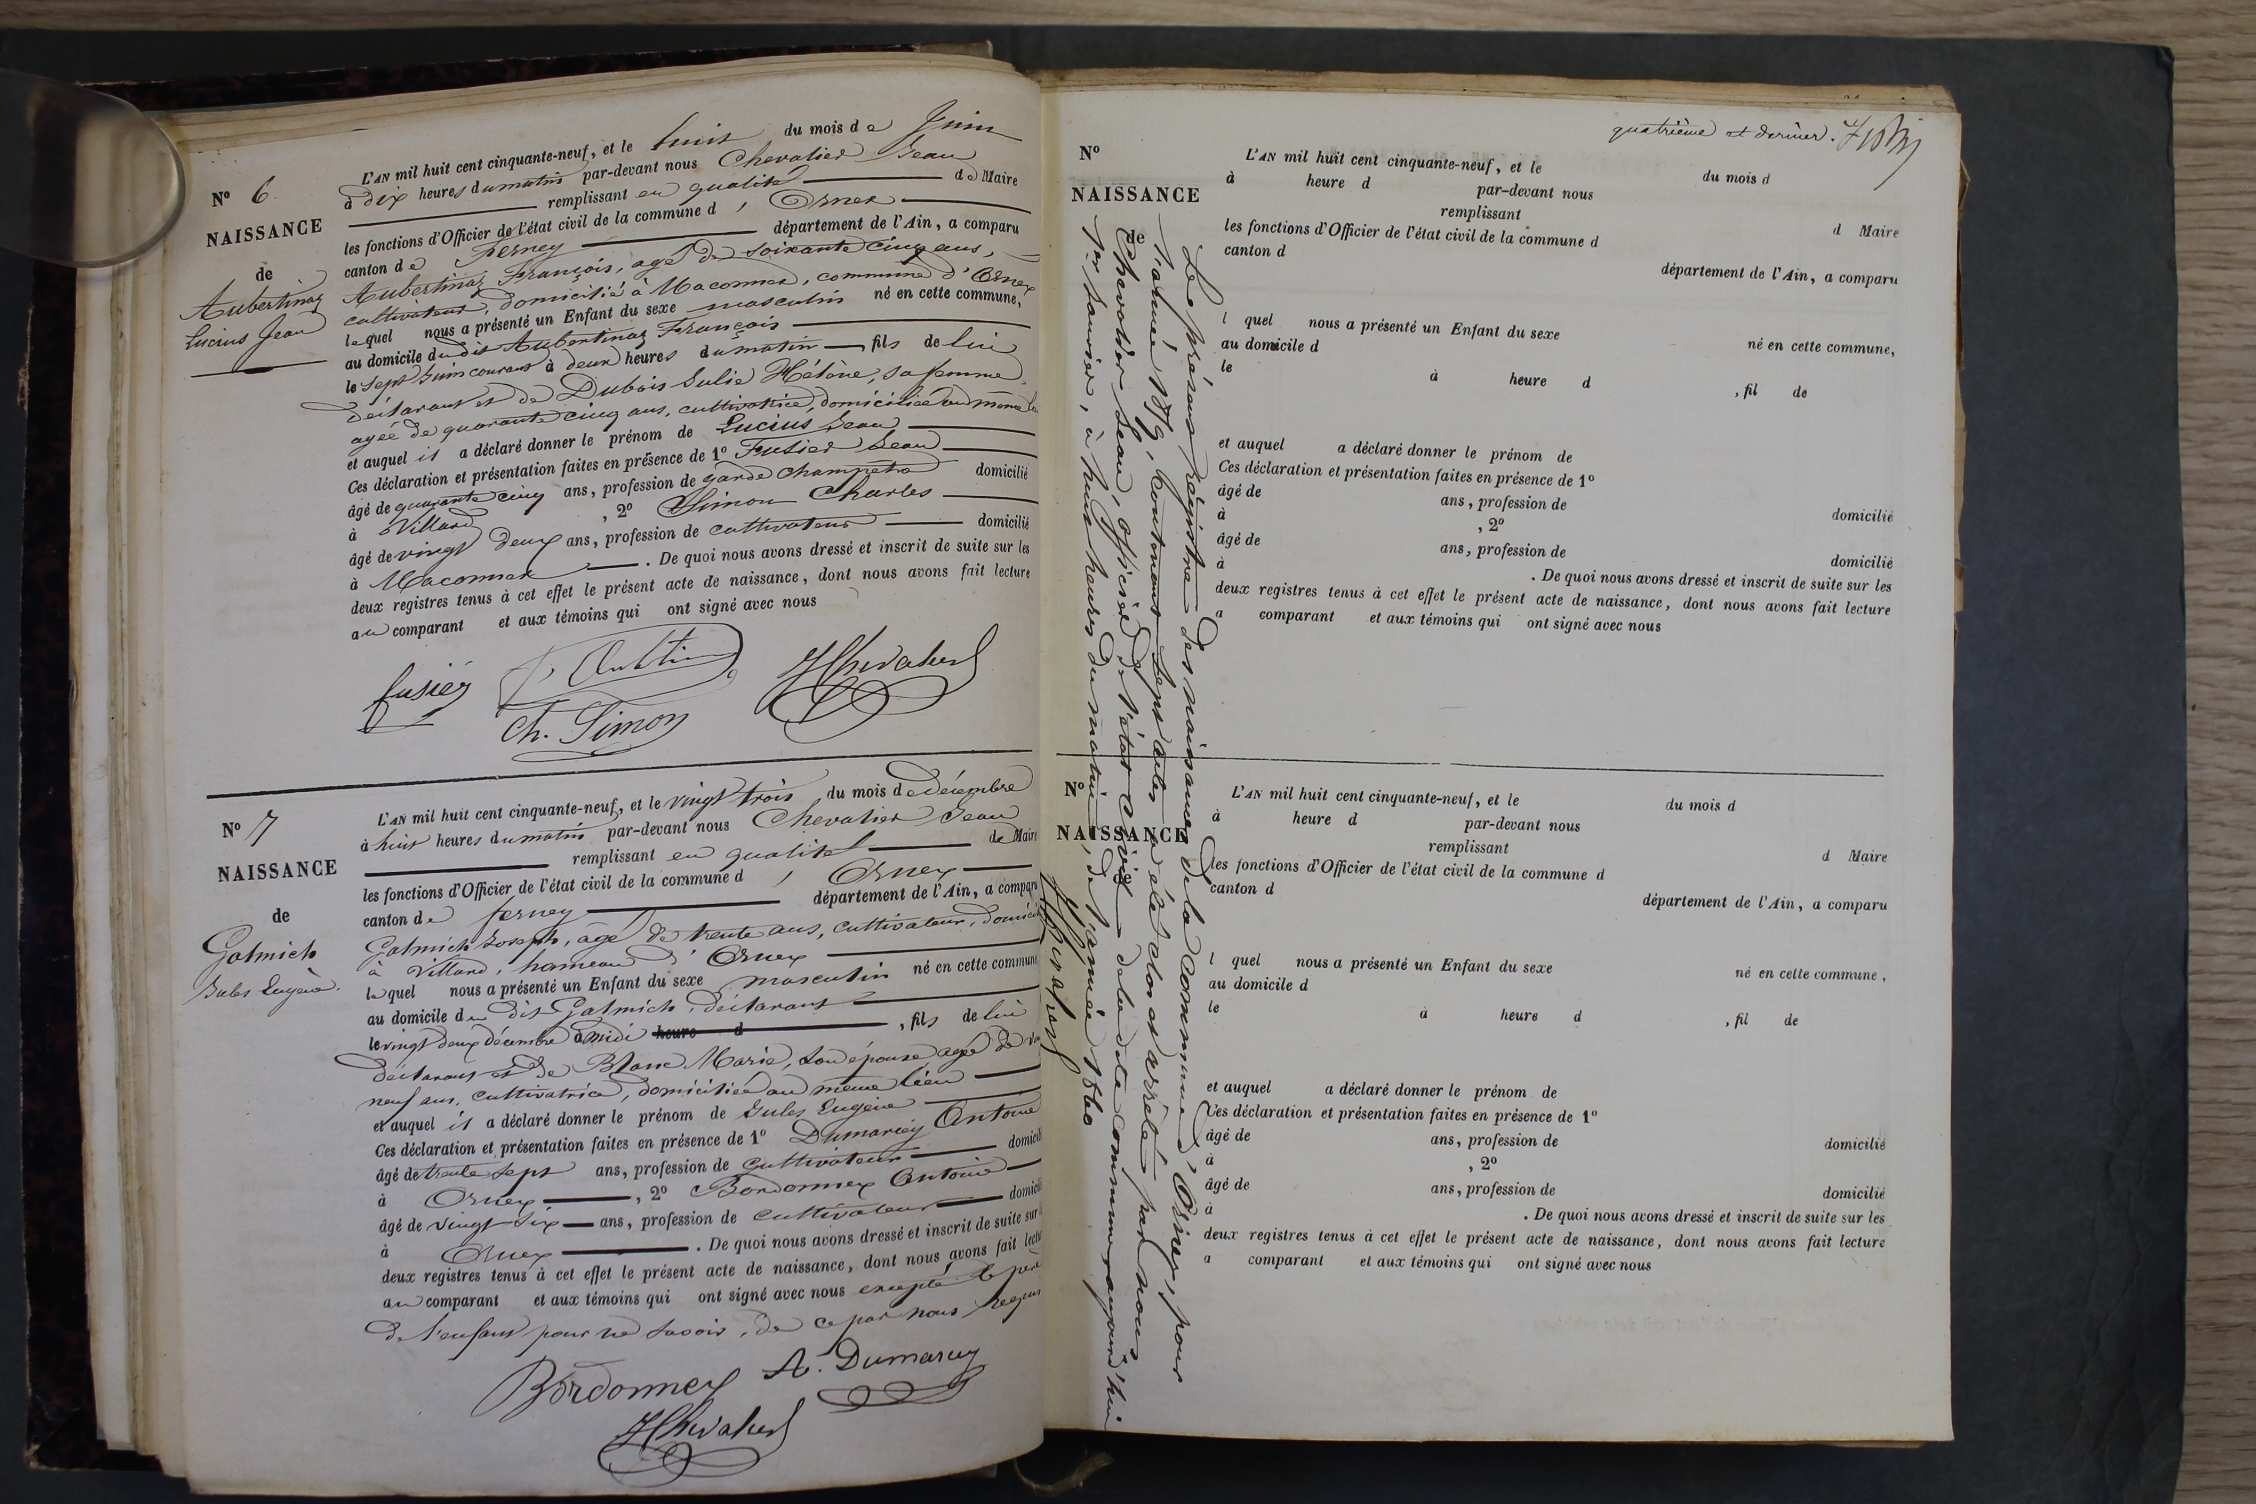 N° 6
NAISSANCE
de
Aubertinaz
Lucius Jean
L'AN mil huit cent cinquante-neuf, et le huit du mois de Juin
à dix heures du matin par-devant nous Chevalier Jean
remplissant en qualité de Maire
les fonctions d'Officier de l'état civil de la commune d' Ornex
canton de Ferney département de l'Ain, a comparu
Aubertinaz François, agé de soixante cinq ans,
cultivateur, domicilié à Maconnex, commune d'Ornex
lequel nous a présenté un Enfant du sexe masculin né en cette commune,
au domicile du dit Aubertinaz François
le sept Juin courant à deux heures du matin fils de lui
déclarant et de Dubois Julie Hélène, sa femme,
agée de quarante cinq ans, cultivatrice, domiciliée au même lieu
et auquel il a déclaré donner le prénom de Lucius Jean
Ces déclaration et présentation faites en présence de 1° Fusier Jean
âgé de quarante cinq ans, profession de garde champêtre domicilié
à Villard, 2° Simon Charles
âgé de vingt deux ans, profession de cultivateur domicilié
à Maconnex. De quoi nous avons dressé et inscrit de suite sur les
deux registres tenus à cet effet le présent acte de naissance, dont nous avons fait lecture
au comparant et aux témoins qui ont signé avec nous
fusier
JChevalier
Ch. Simon
N° 7
NAISSANCE
de
Galmich
Jules Eugène.
L'AN mil huit cent cinquante-neuf, et le vingt trois du mois de décembre
à huit heures du matin par-devant nous Chevalier Jean
remplissant en qualité de Maire
les fonctions d'Officier de l'état civil de la commune d' Ornex
canton de ferney département de l'Ain, a comparu
Galmich Joseph, agé de trente ans, cultivateur, domicilié
à Villard, hameau d'Ornex
lequel nous a présenté un Enfant du sexe masculin né en cette commune
au domicile du dit Galmich, déclarant
le vingt deux décembre à midi heure d, fils de lui
déclarant et de Blanc Marie, son épouse agée de
neuf ans, cultivatrice, domiciliée au même lieu
et auquel il a déclaré donner le prénom de Jules Eugène
Ces déclaration et présentation faites en présence de 1° Dumarcey Antoine
âgé de trente sept ans, profession de cultivateur domicilié
à Ornex, 2° Bordonnex Antoine
âgé de vingt six ans, profession de cultivateur domicilié
à Ornex. De quoi nous avons dressé et inscrit de suite sur
deux registres tenus à cet effet le présent acte de naissance, dont nous avons fait lecture
au comparant et aux témoins qui ont signé avec nous excepté le père
de l'enfant pour ne savoir, de ce par nous requis
Bordonnex A. Dumarcey
JChevalier
quatrième et dernier.
N°
NAISSANCE
de
L'AN mil huit cent cinquante-neuf, et le du mois d
à heure d par-devant nous
remplissant d Maire
les fonctions d'Officier de l'état civil de la commune d
canton d département de l'Ain, a comparu
l quel nous a présenté un Enfant du sexe né en cette commune,
au domicile d
le à heure d , fil de
et auquel a déclaré donner le prénom de
Ces déclaration et présentation faites en présence de 1°
âgé de ans, profession de domicilié
à , 2°
âgé de ans, profession de domicilié
à . De quoi nous avons dressé et inscrit de suite sur les
deux registres tenus à cet effet le présent acte de naissance, dont nous avons fait lecture
a comparant et aux témoins qui ont signé avec nous
N°
NAISSANCE
de
L'AN mil huit cent cinquante-neuf, et le du mois d
à heure d par-devant nous
remplissant d Maire
les fonctions d'Officier de l'état civil de la commune d
canton d département de l'Ain, a comparu
l quel nous a présenté un Enfant du sexe né en cette commune,
au domicile d
le à heure d , fil de
et auquel a déclaré donner le prénom de
Ces déclaration et présentation faites en présence de 1°
âgé de ans, profession de domicilié
à , 2°
âgé de ans, profession de domicilié
à . De quoi nous avons dressé et inscrit de suite sur les
deux registres tenus à cet effet le présent acte de naissance, dont nous avons fait lecture
a comparant et aux témoins qui ont signé avec nous
Le présent Régistre des naissances de la commune d'Ornex, pour
l'année 1859, contenant sept actes a été clos et arrêté par nous
Chevalier Jean, officier de l'état civil de la dite commune, aujourd'hui
1er Janvier, à huit heures du matin, de l'année 1860
JChevalier